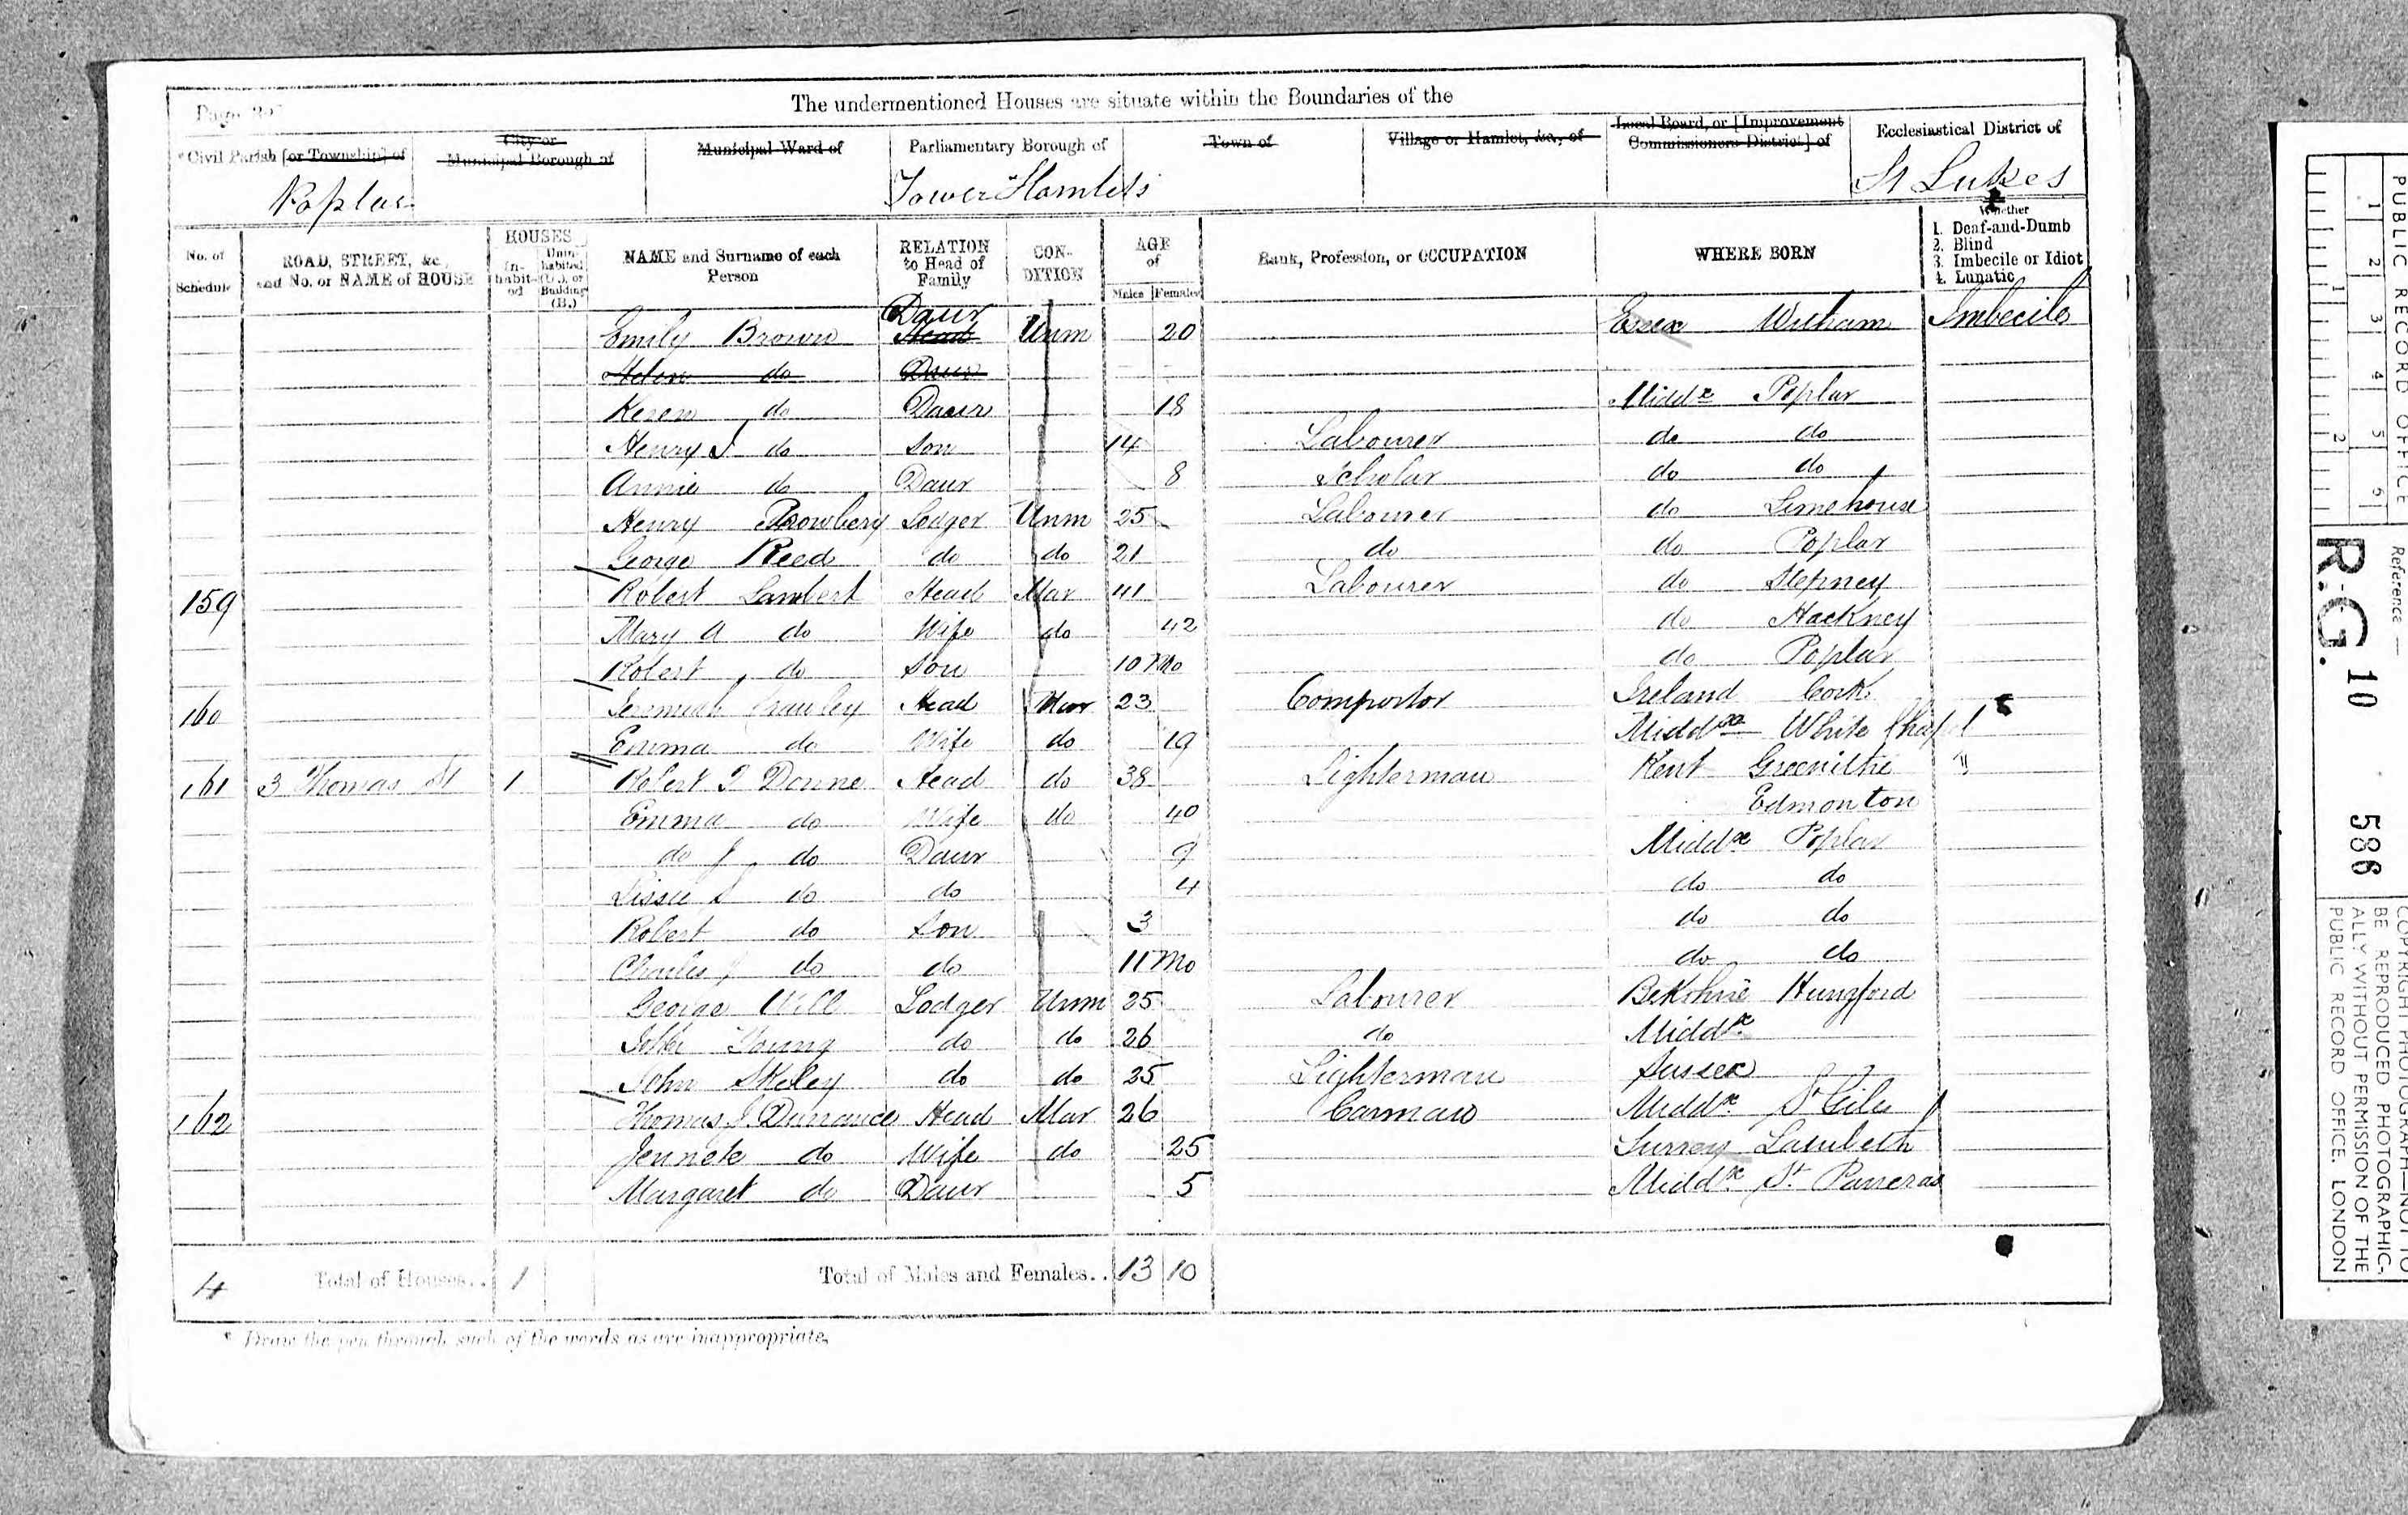 The undermentioned Houses are situate within the Boundaries of the
*Civil Parish [or Township] of
City or Municipal Borough of
Municipal Ward of
Parliamentary Borough of
Town of
Village or Hamlet, &c., of
Local Board, or [Improvement Commissioners District] of
Ecclesiastical District of
Poplar
Tower Hamlets
St Lukes
No. of Schedule
ROAD, STREET, &c., and No. or NAME of HOUSE
HOUSES
In-habit-ed
Unin-habited (U.), or Building (B.)
NAME and Surname of each Person
RELATION to Head of Family
CON-DITION
AGE of
Males
Females
Rank, Profession, or OCCUPATION
WHERE BORN
Whether
1. Deaf-and-Dumb
2. Blind
3. Imbecile or Idiot
4. Lunatic
Emily Brown Daur Head Unm 20 Essex Witham Imbecile
Helen do Daur
Keren do Daur 18 Middx Poplar
Henry J do Son 14 Labourer do do
Annie do Daur 8 Scholar do do
Henry Lodger Unm 25 Labourer do Limehouse
George Reed do do 21 do do Poplar
159 Robert Lambert Head Mar 41 Labourer do Stepney
Mary A do Wife do 42 do Hackney
Robert do Son 10 Mo do Poplar
160 Jeremiah Crawley Head Mar 23 Compositor Ireland Cork
Emma do Wife do 19 Middsx White Chapel
161 3 Thomas St 1 Robert Donne Head do 38 Lighterman Kent Greenithe
Emma do Wife do 40 Edmonton
do J do Daur 9 Middx Poplar
Lissie do do 4 do do
Robert do Son 3 do do
Charles J do do 11 Mo do do
George Will Lodger Unm 25 Labourer Bekshire Hungford
John Young do do 26 do Middx
John Skeley do do 25 Lighterman Sussex
162 Thomas J Durrance Head Mar 26 Carman Middx St Giles
Jennete do Wife do 25 Surrey Lambeth
Margaret do Daur 5 Middx St Pancras
4 Total of Houses.. 1 Total of Males and Females.. 13 10
* Draw the pen through such of the words as are inappropriate.
PUBLIC RECORD OFFICE
1 2 3 4 5 6
1 2
Reference
R.G. 10 586
COPYRIGHT PHOTOGRAPH—NOT TO
BE REPRODUCED PHOTOGRAPHIC-
ALLY WITHOUT PERMISSION OF THE
PUBLIC RECORD OFFICE, LONDON